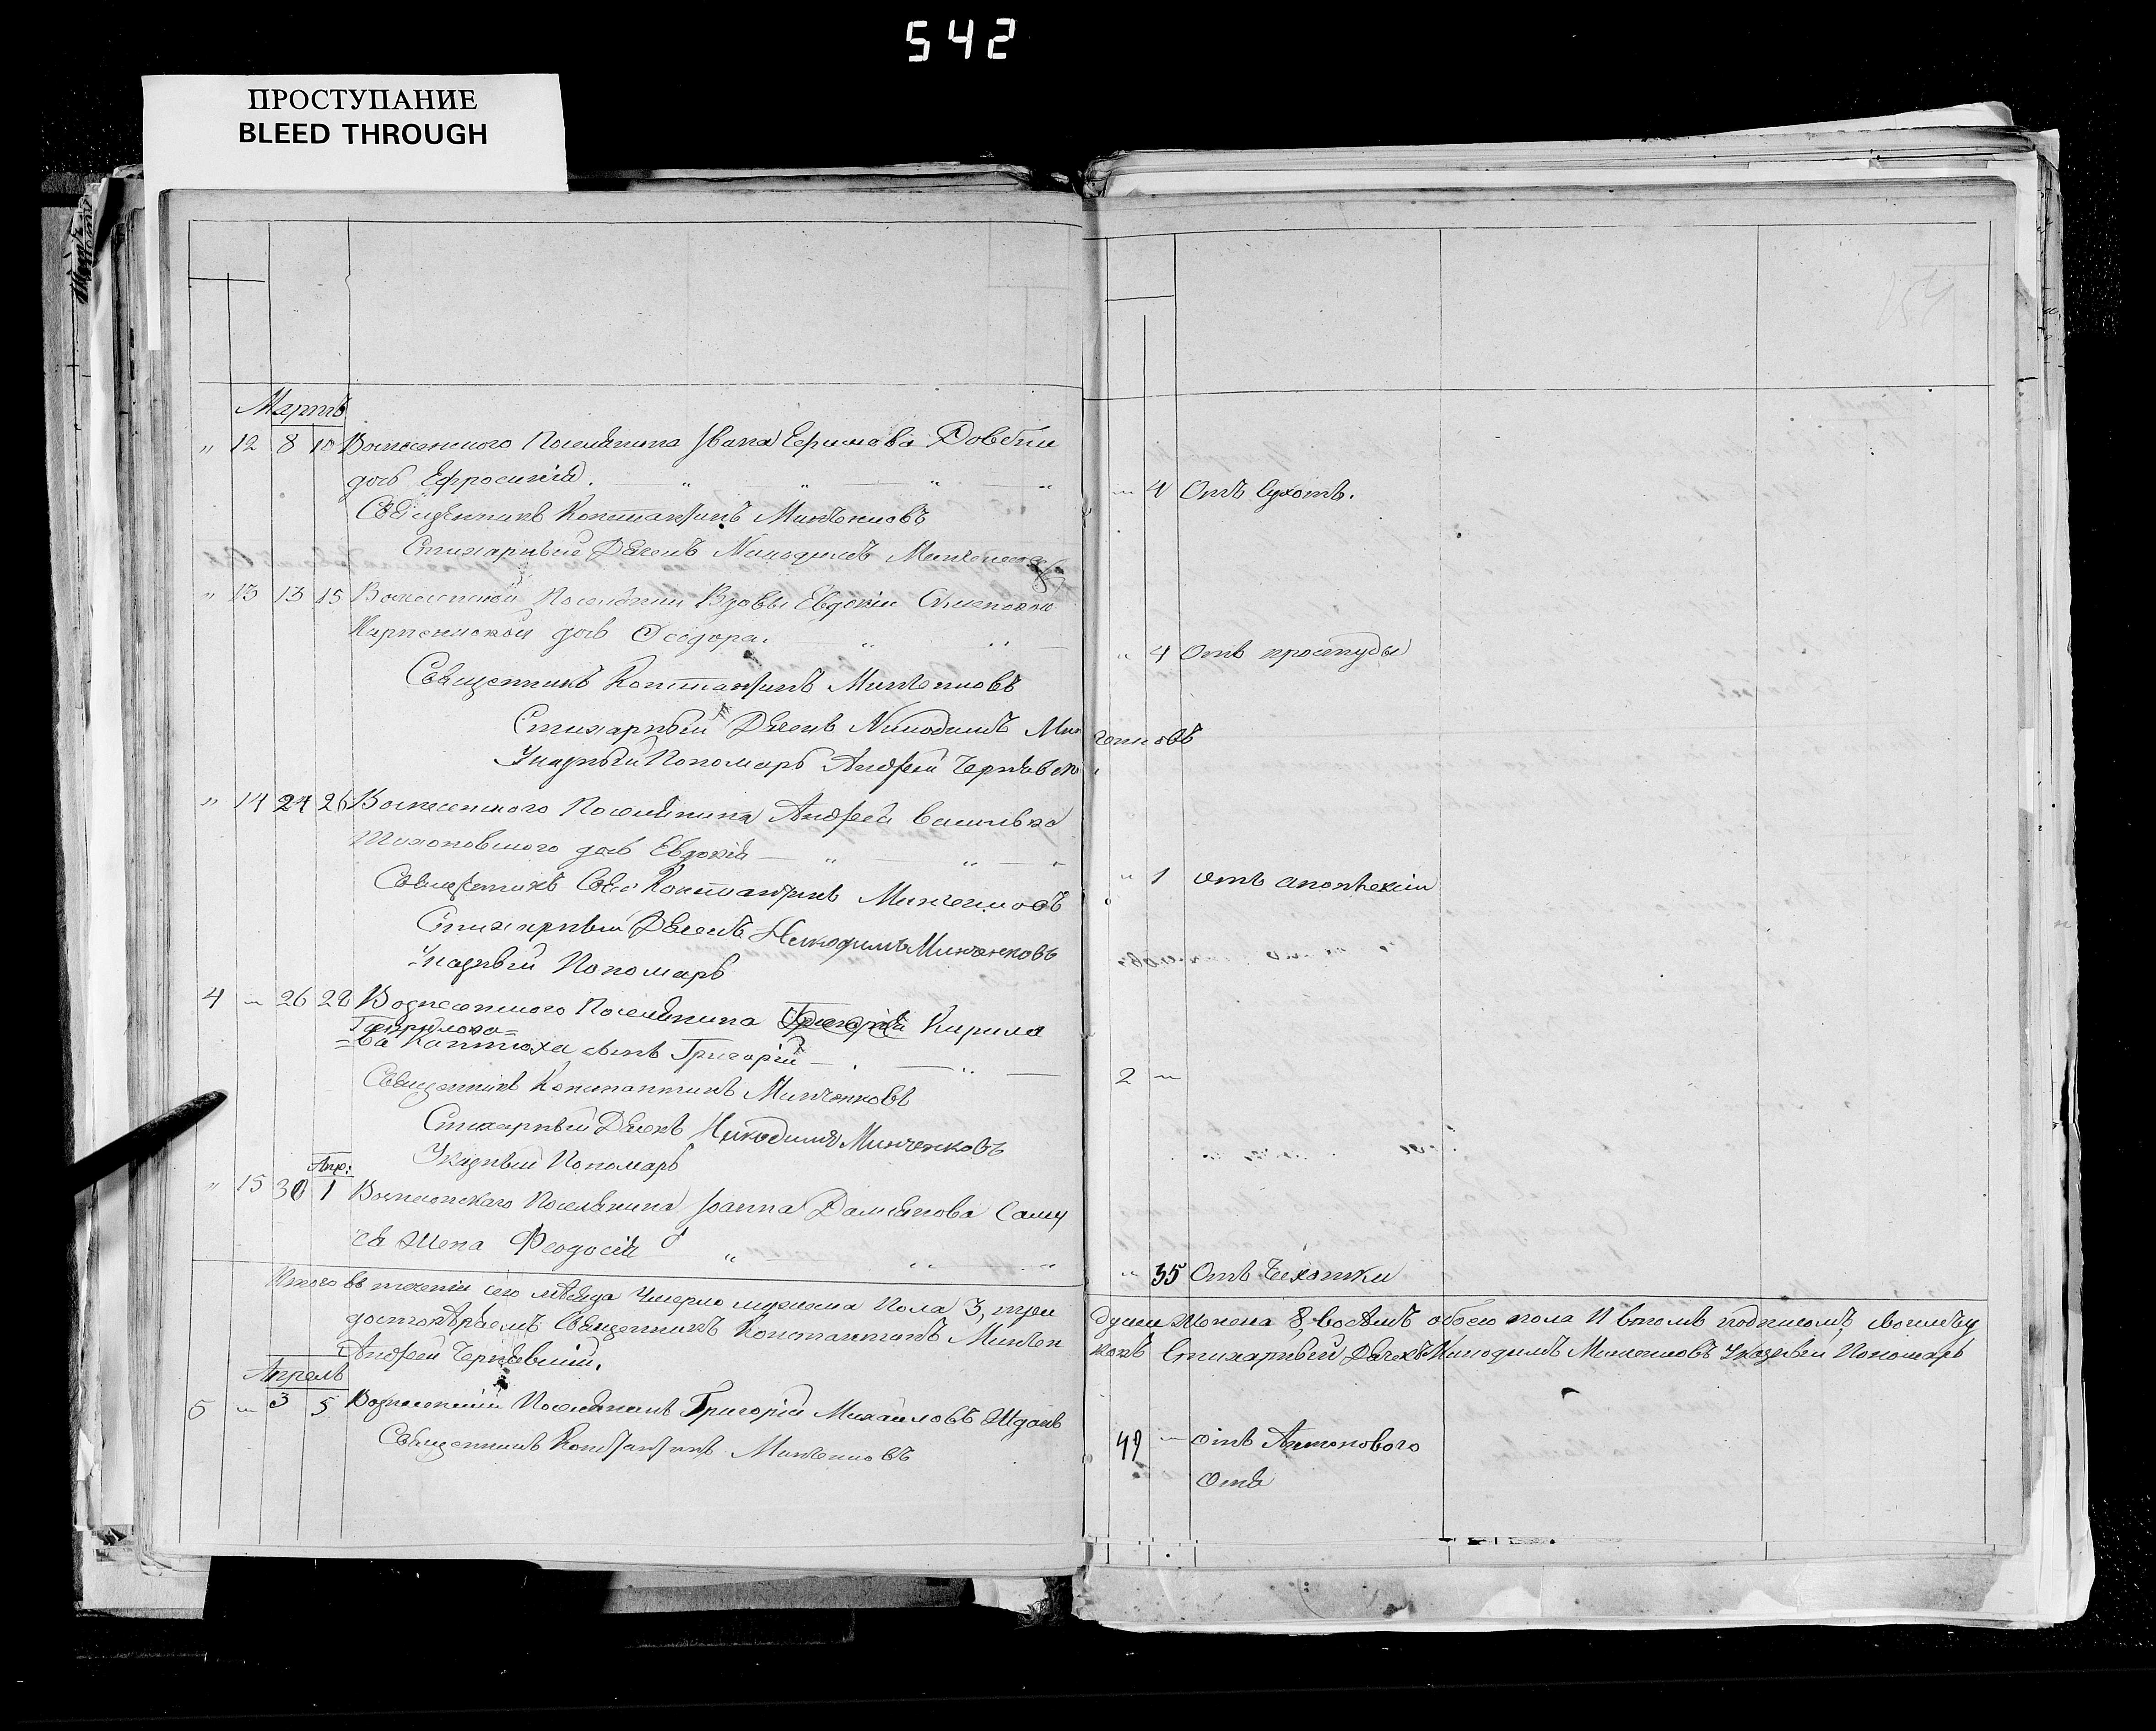 542
ПРОСТУПАНИЕ
BLEED THROUGH
154
Мартъ
" 12 8 10 Вознесенского Поселянина Ивана Ефимова Довбни
дочь Ефросинія. " " " "
" 4 Отъ Сухотъ.
Священникъ Константинъ Минченковъ
Стихарный Дячекъ Никодимъ Минченковъ
" 13 13 15 Вознесенской Поселянки Вдовы Евдокіи
дочь Ѳеодора. " "
" 4 Отъ простуды
Священникъ Константинъ Минченковъ
Стихарный Дячекъ Никодимъ Минченковъ
Указный Пономарь Андрей Чернявск
" 14 24 26 Вознесенского Поселянина Андрей
Тихоновского дочь Евдокія " " "
" 1 отъ апоплексіи
Священникъ Константинъ Минченковъ
Стихарный Дячекъ Никодимъ Минченковъ
Указный Пономарь
4 " 26 28 Вознесенского Поселянина Кирила
Гаврилова
сынъ Григорій "
2 "
Священникъ Константинъ Минченковъ
Стихарный Дячекъ Никодимъ Минченковъ
Указный Пономарь
Апр:
" 15 30 1 Вознесенскаго Поселянина Іоанна Даміанова
жена Феодосія " " "
" 35 Отъ Чихотки
Итого въ теченіи сего мѣсяца Умерло мужеска Пола 3, три души Женска 8, восѣмъ обоего пола 11 вчомъ подписомъ
Священникъ Константинъ Минченковъ Стихарный Дячекъ Никодимъ Минченковъ Указный Пономарь
Андрей Чернявскій.
Апрель
5 " 3 5 Вознесенскій Поселянинъ Григорій Михайловъ
49 " отъ Антонового
Священникъ Константинъ Минченковъ
Отъ